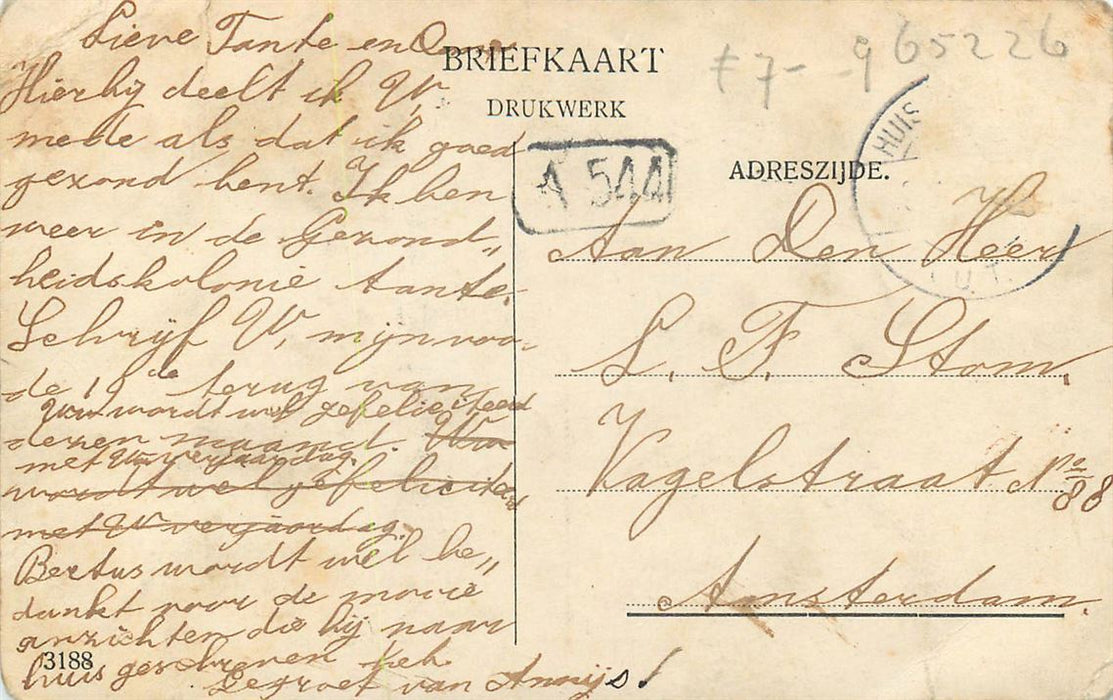 Lieve Tante en O
Hierbij deelt ik U,
mede als dat ik goed
gezond bent. Ik ben
weer in de Gezond„
heidskolonie tante.
Schrijf U, mijn voo-
de 19 de terug van
Uw wordt wel gefeliciteerd
dezen maand. Uw
met Uw verjaardag.
wordt wel gefeliciteerd
met U verjaardag.
Bertus wordt wel be„
dankt voor de mooie
anzichten die hij naar
huis geschreven heb.
Gegroet van Annijs!
3188
BRIEFKAART
DRUKWERK
ADRESZIJDE.
£ 7- -9 65226
A 544
HUIS
U.T.
Aan Den Heer
L. F. Stom.
Vagelstraat No 88
Amsterdam.